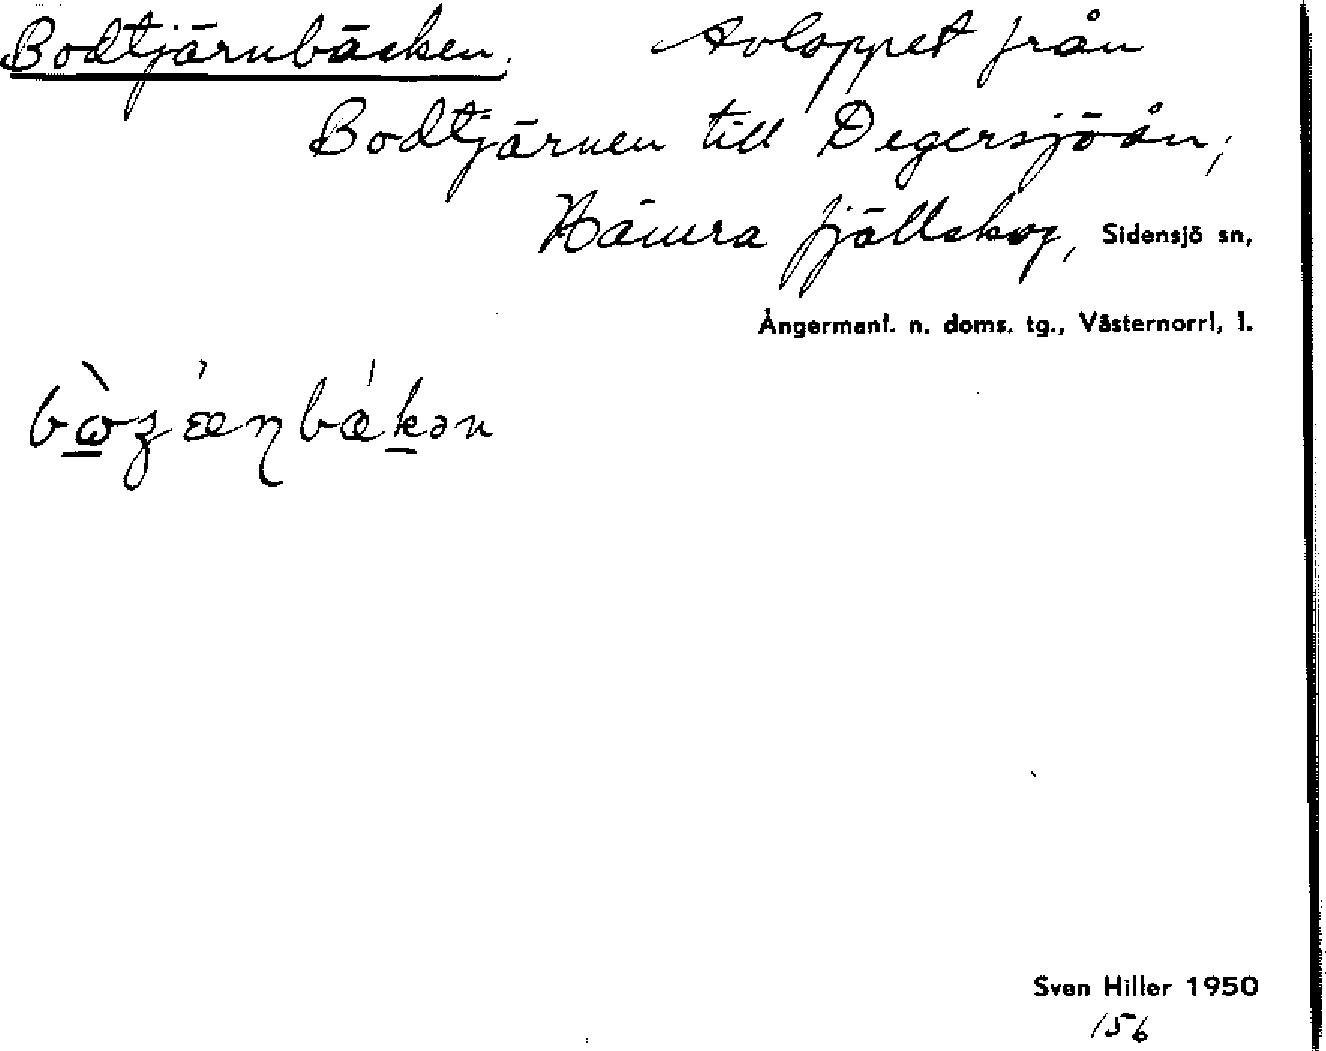 Bodtjärnbäcken. Avloppet från
Bodtjärnen till Degersjöån,
Hämra fjällskog, Sidensjö sn,
Ångermanl. n. doms. tg., Västernorrl. l.
Sven Hiller 1950
156